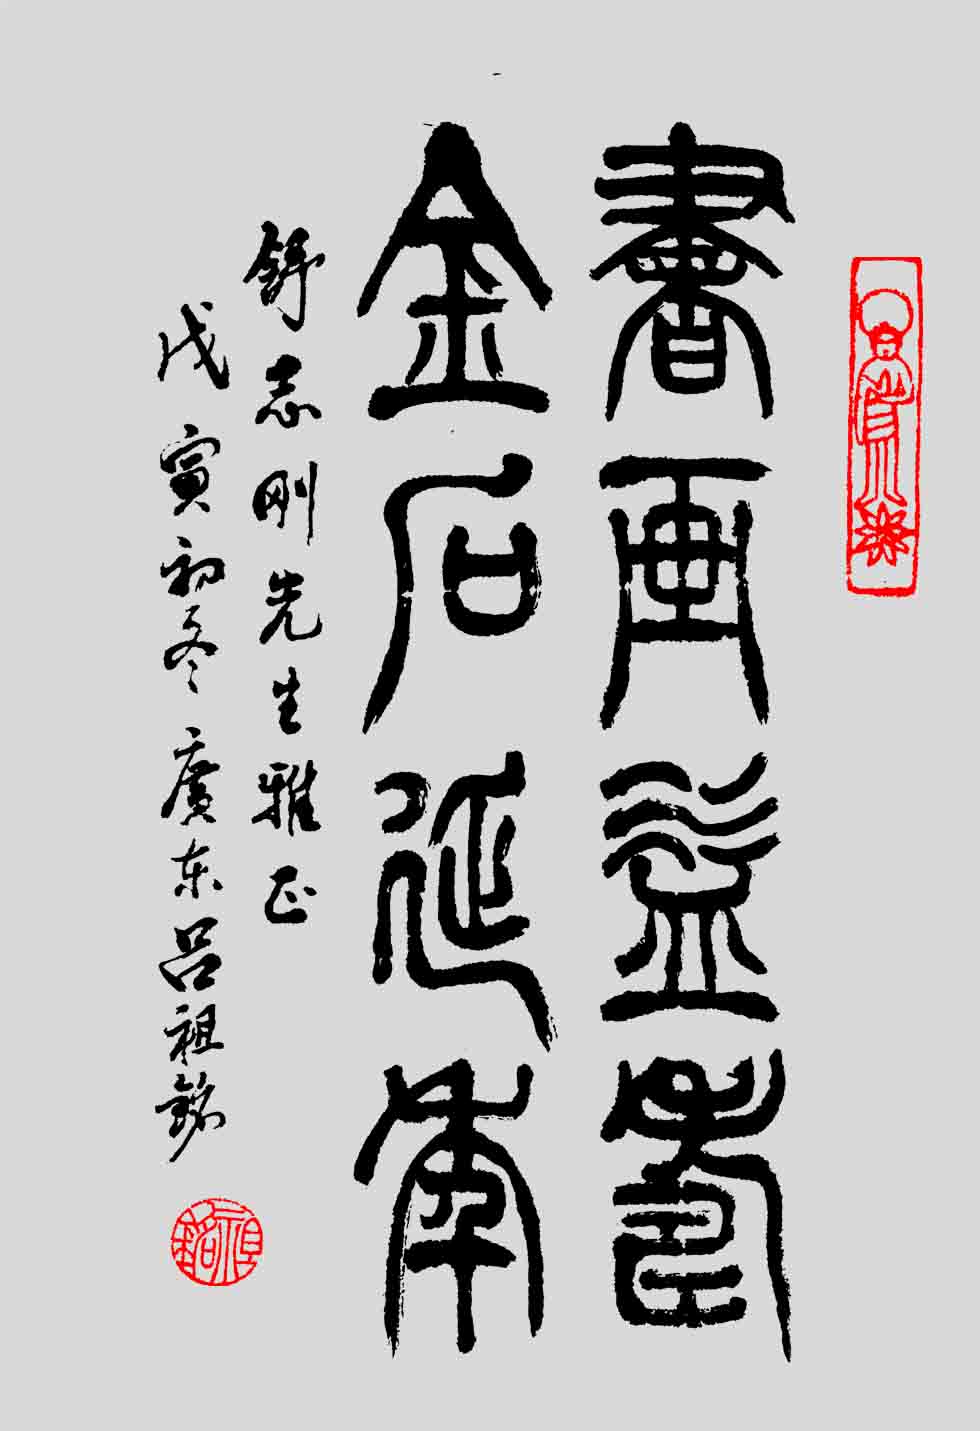 書画益壽
金石延年
舒志刚先生雅正
戊寅初冬廣东吕祖銘
祖銘